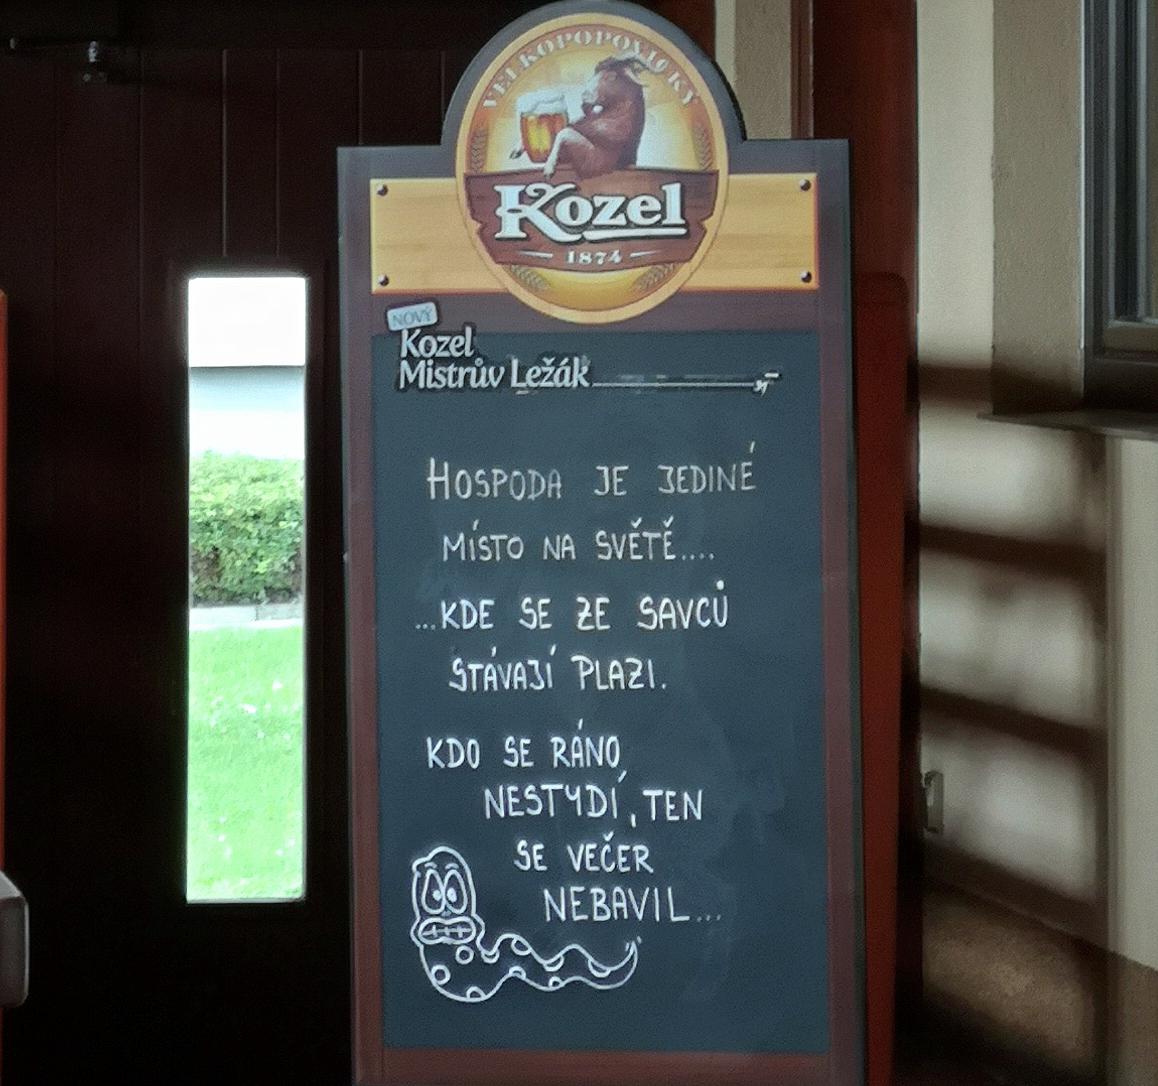 VELKOPOPOVICKÝ
Kozel
1874
NOVÝ
Kozel
Mistrův Ležák
HOSPODA JE JEDINÉ
MÍSTO NA SVĚTĚ....
...KDE SE ZE SAVCŮ
STÁVAJÍ PLAZI.
KDO SE RÁNO
NESTYDÍ, TEN
SE VEČER
NEBAVIL...